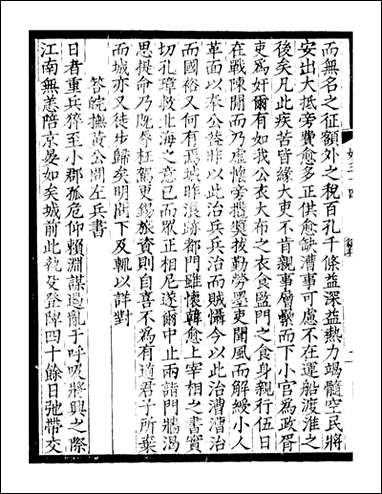 而無名之征額外之稅百孔千條益深益熱力竭髓空民將
安出大抵旁費愈多正供愈缺漕事可慮不在運船渡淮之
後矣凡此疾苦皆緣大吏不肯親事層纍而下小官為政胥
吏為奸爾有如我公衣大布之衣食監門之食身親行伍日
在戰陳開而乃虛懷旁攬獎拔勤勞墨吏聞風而解綬小人
革面以奉公從昨以此治兵兵治而賊懾今以此治漕漕治
而國俗又何有焉城昨浪跡都門雖懷韓愈上宰相之書實
切孔璋救北海之意已而眾正相尼遂爾中止兩詣門牆渴
思提命乃既辱枉駕更錫旅資則自喜不為有道君子所棄
而城亦又徒步歸矣明問下及輒以詳對
答皖撫黃公問左兵書
日者重兵猝至小郡孤危仰賴淵謀遏亂于呼吸將興之際
江南無恙陪京晏如矣城前此執殳登陴四十餘日弛帶交